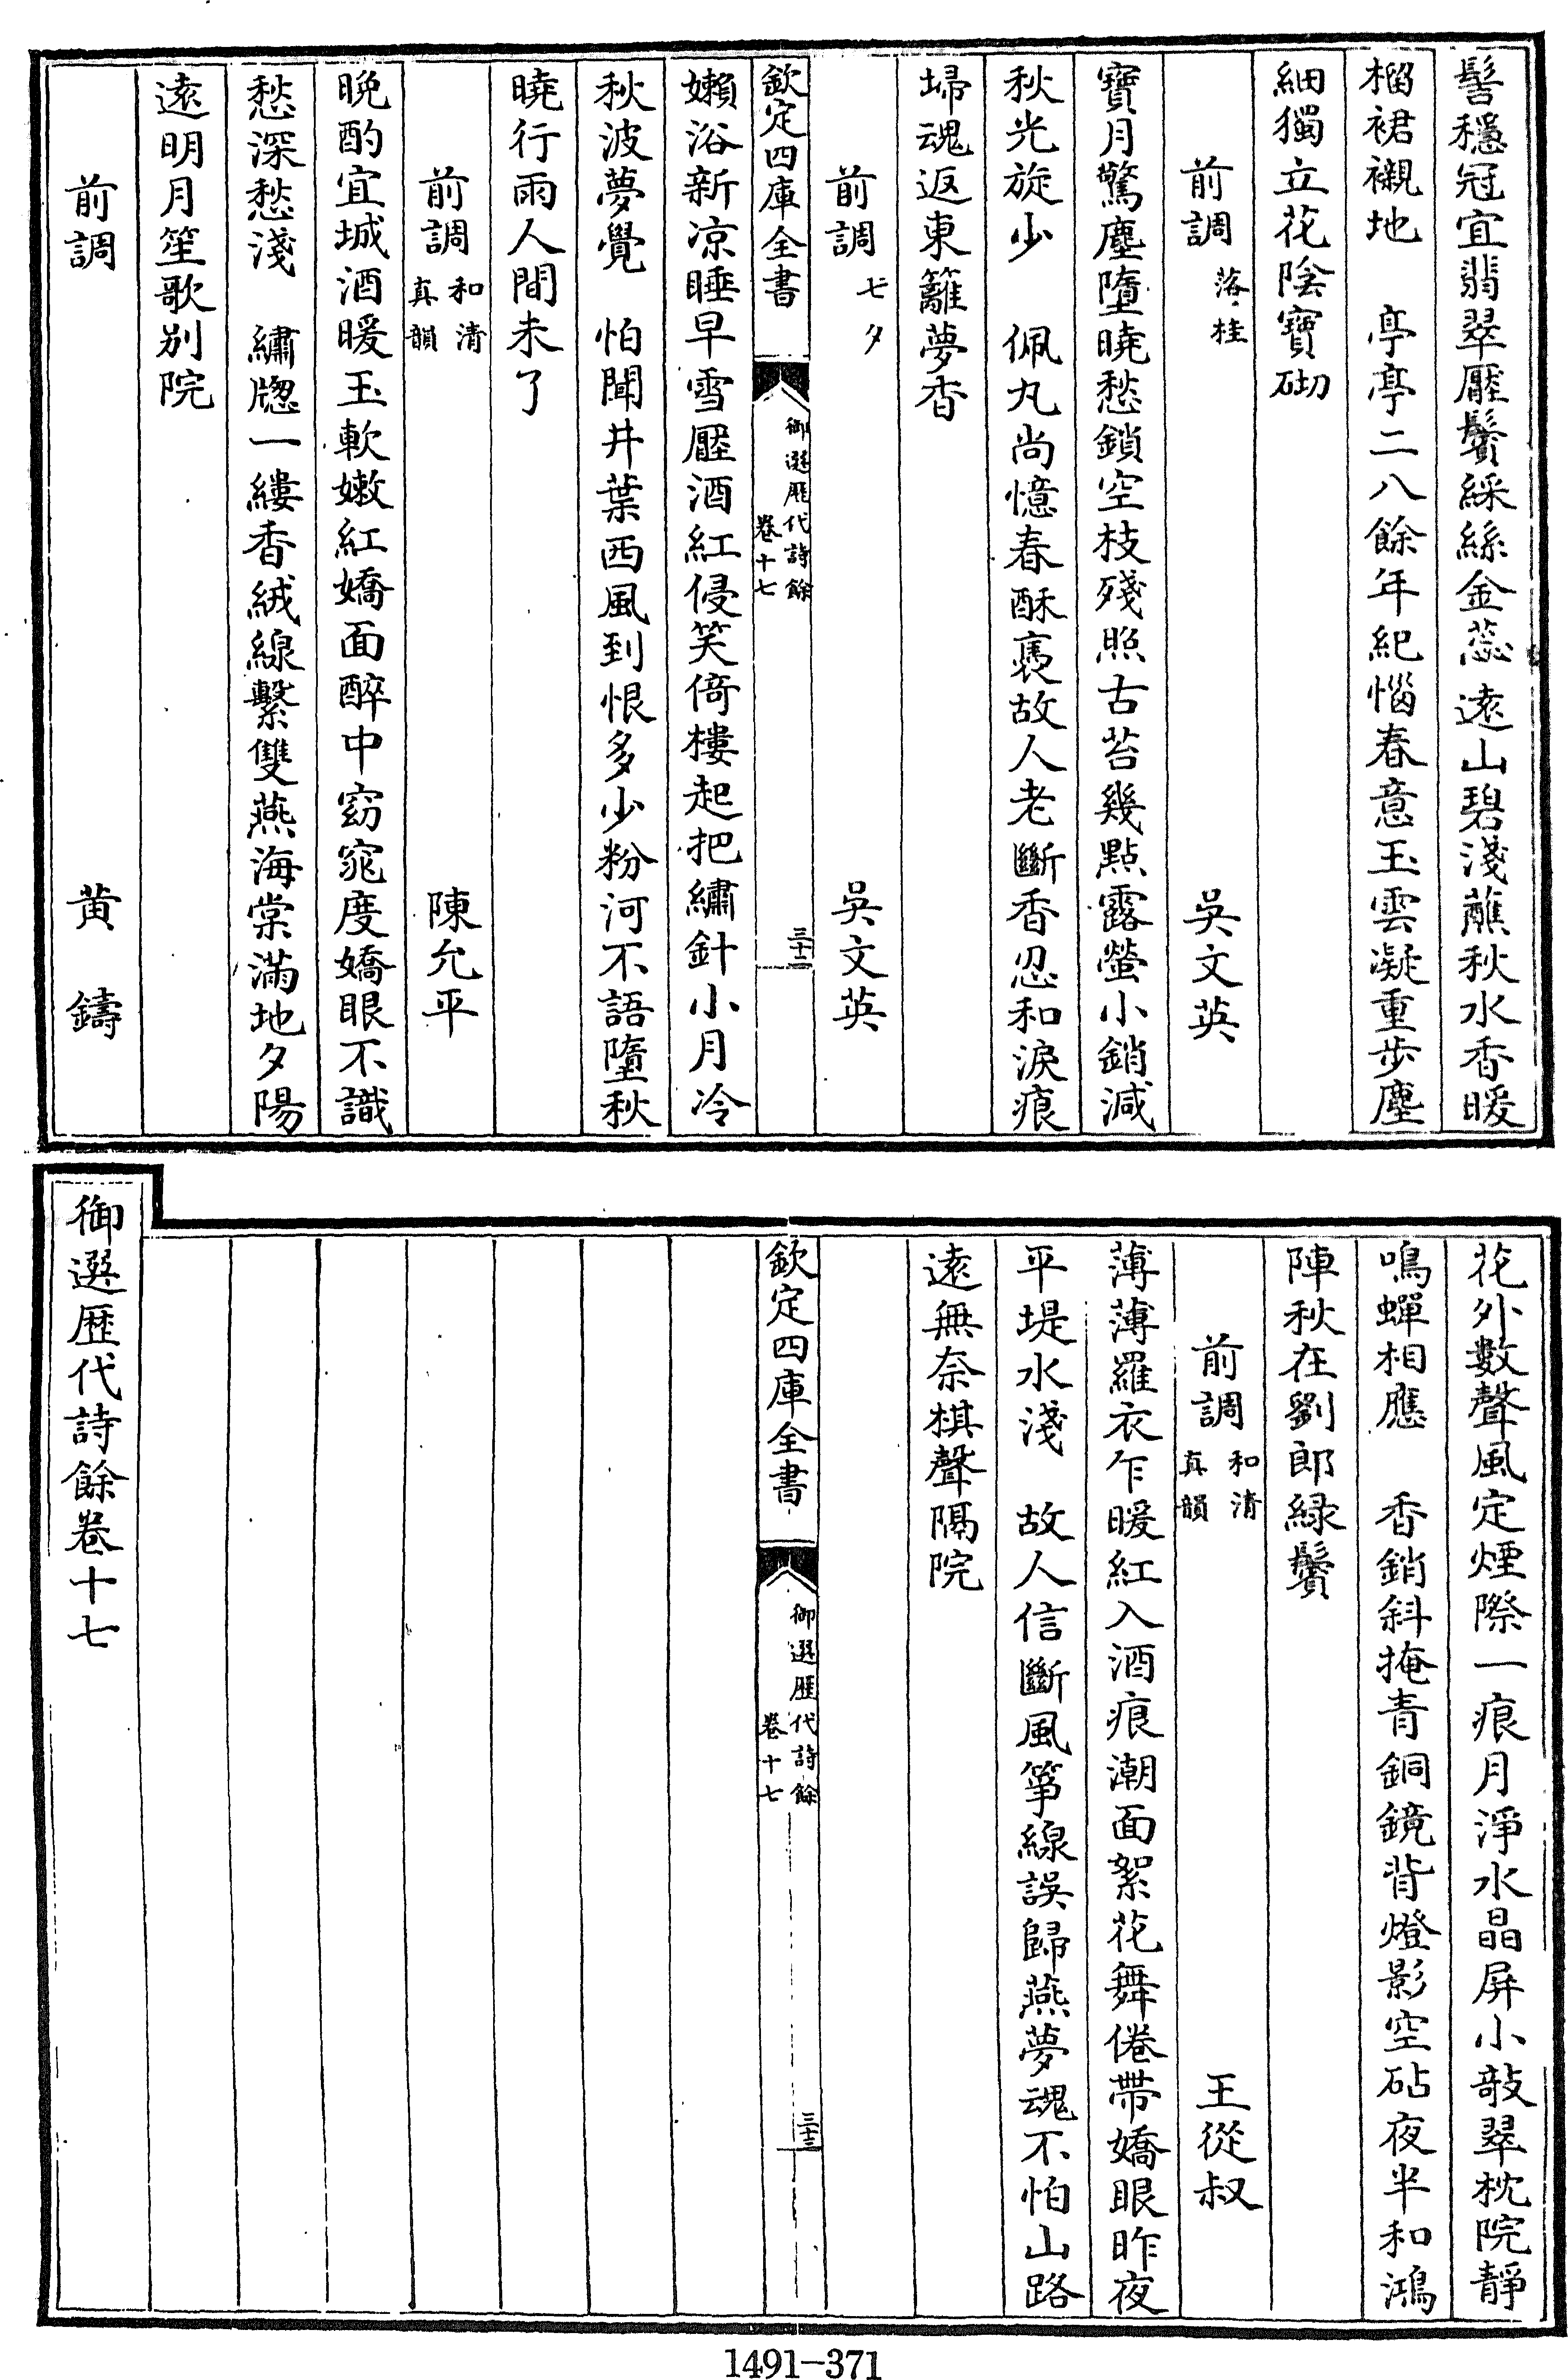 髻穩冠宜翡翠壓鬢綵絲金蕊遠山碧淺蘸秋水香暖
榴裙襯地　亭亭二八餘年紀惱春意玉雲凝重步塵
細獨立花陰寶砌
前調 落桂　吳文英
寶月驚塵墮曉愁鎖空枝殘照古苔幾點露螢小銷減
秋光旋少　佩丸尚憶春酥裛故人老斷香忍和淚痕
埽魂返東籬夢杳
前調 七夕　吳文英
欽定四庫全書　御選歷代詩餘 卷十七　三十二
嬾浴新凉睡早雪壓酒紅侵笑倚樓起把繡針小月冷
秋波夢覺　怕聞井葉西風到恨多少粉河不語墮秋
曉行雨人間未了
前調 和清真韻　陳允平
晚酌宜城酒暖玉軟嫩紅嬌面醉中窈窕度嬌眼不識
愁深愁淺　繡牕一縷香絨線繫雙燕海棠滿地夕陽
遠明月笙歌别院
前調　黃鑄
花外數聲風定煙際一痕月淨水晶屏小敲翠枕院靜
鳴蟬相應　香銷斜掩青銅鏡背燈影空砧夜半和鴻
陣秋在劉郎緑鬢
前調 和清真韻　王從叔
薄薄羅衣乍暖紅入酒痕潮面絮花舞倦帶嬌眼昨夜
平堤水淺　故人信斷風箏線誤歸燕夢魂不怕山路
遠無奈棋聲隔院
欽定四庫全書　御選歷代詩餘 卷十七　三十三
御選歷代詩餘卷十七
1491-371